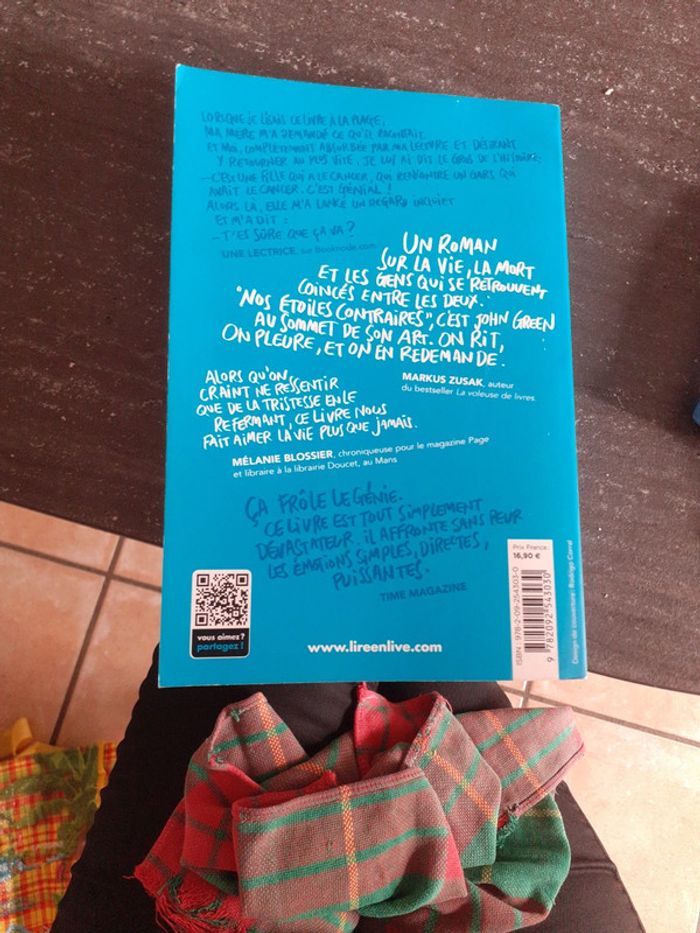 LORSQUE JE LISAIS CE LIVRE À LA PLAGE,
MA MÈRE M'A DEMANDÉ CE QU'IL RACONTAIT.
ET MOI, COMPLÈTEMENT ABSORBÉE PAR MA LECTURE ET DÉSIRANT
Y RETOURNER AU PLUS VITE, JE LUI AI DIT LE GROS DE L'HISTOIRE:
– C'EST UNE FILLE QUI A LE CANCER, QUI RENCONTRE UN GARS QUI
AVAIT LE CANCER. C'EST GÉNIAL !
ALORS LÀ, ELLE M'A LANCÉ UN REGARD INQUIET
ET M'A DIT :
– T'ES SÛRE QUE ÇA VA ?
UNE LECTRICE, sur Booknode.com
UN ROMAN
SUR LA VIE, LA MORT
ET LES GENS QUI SE RETROUVENT
COINCÉS ENTRE LES DEUX.
"NOS ÉTOILES CONTRAIRES", C'EST JOHN GREEN
AU SOMMET DE SON ART. ON RIT,
ON PLEURE, ET ON EN REDEMANDE.
MARKUS ZUSAK, auteur
du bestseller La voleuse de livres.
ALORS QU'ON
CRAINT NE RESSENTIR
QUE DE LA TRISTESSE EN LE
REFERMANT, CE LIVRE NOUS
FAIT AIMER LA VIE PLUS QUE JAMAIS.
MÉLANIE BLOSSIER, chroniqueuse pour le magazine Page
et libraire à la librairie Doucet, au Mans
ÇA FRÔLE LE GÉNIE.
CE LIVRE EST TOUT SIMPLEMENT
DÉVASTATEUR. IL AFFRONTE SANS PEUR
LES ÉMOTIONS SIMPLES, DIRECTES,
PUISSANTES.
TIME MAGAZINE
vous aimez ?
partagez !
www.lireenlive.com
Prix France
16,90 €
ISBN : 978-2-09-254303-0
9 782092 543030
Design de couverture : Rodrigo Corral